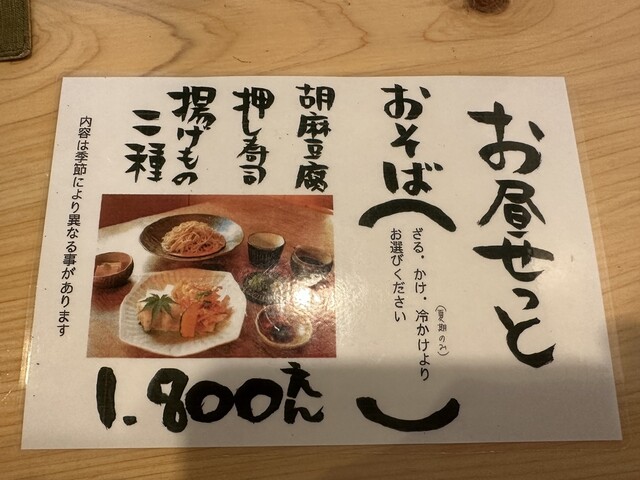 お昼せっと
おそば
(ざる・かけ・冷かけより
(夏期のみ)
お選びください)
胡麻豆腐
押し寿司
揚げもの
二種
内容は季節により異なる事があります
1.800えん